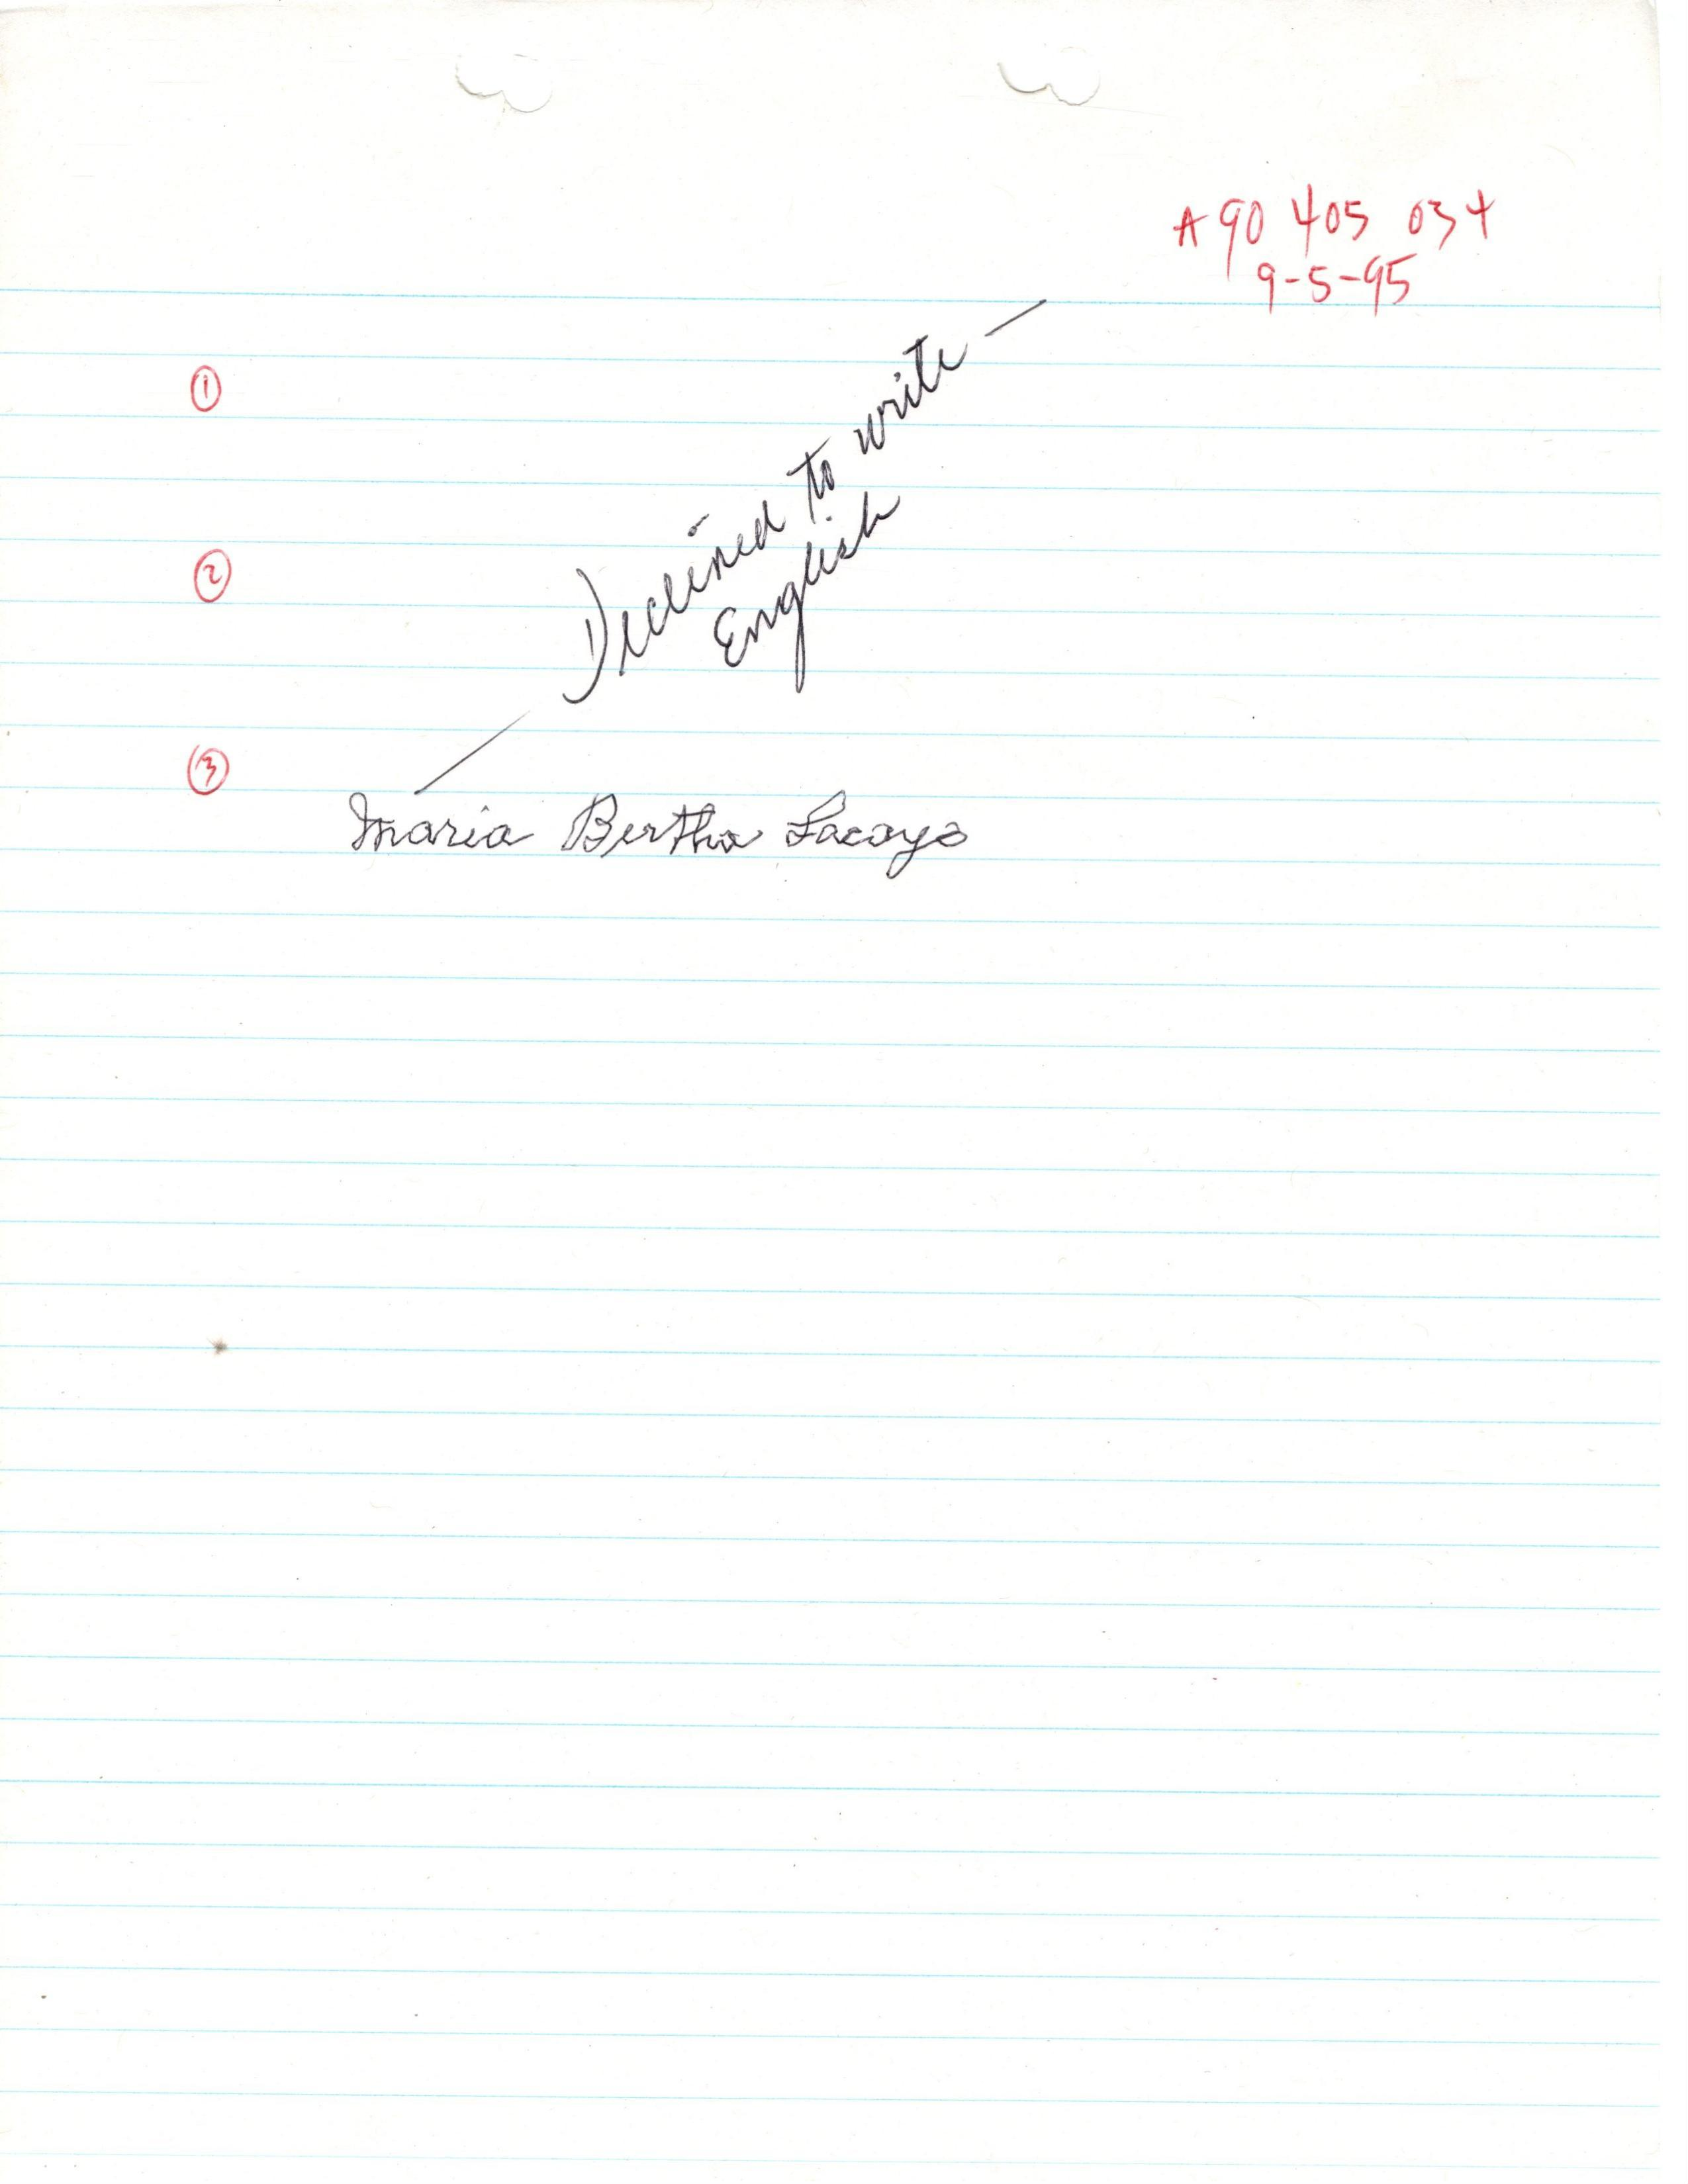 A 90 405 034
9-5-95
①
— Declined to write —
English
②
③
Maria Bertha Lacayo